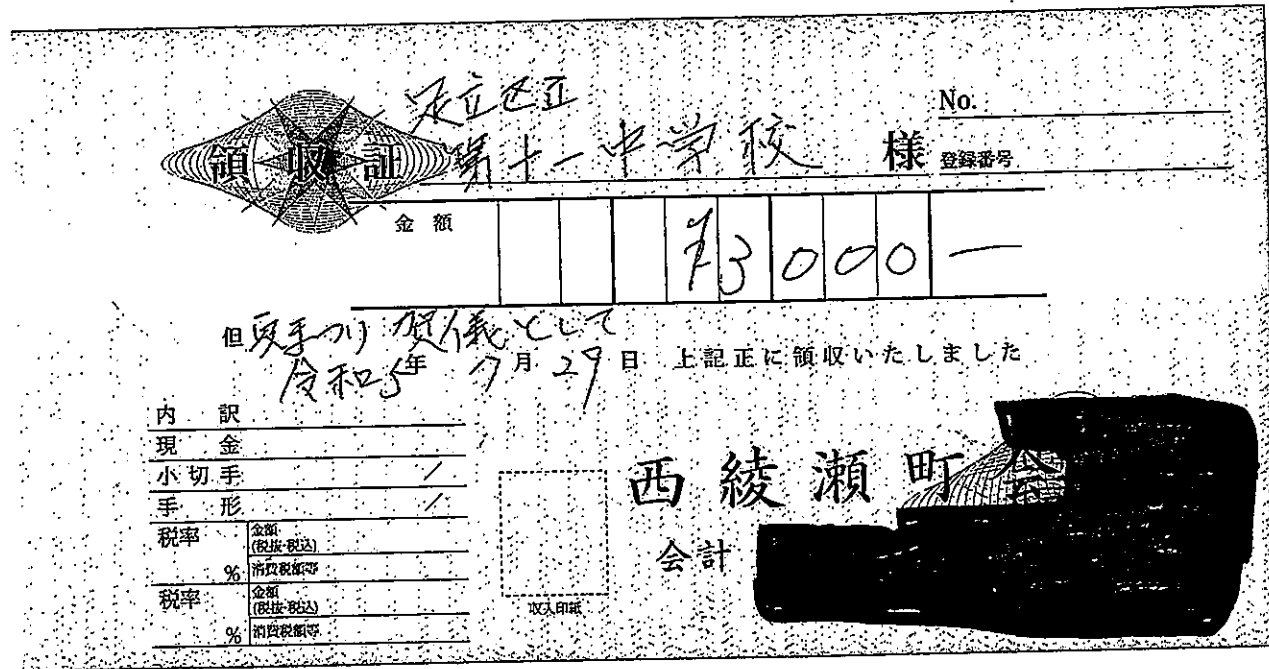 領収証
足立区立
第十一中学校 様
No.
登録番号
金額 ¥3000—
但 夏まつり 賀儀として
令和5年 7月29日 上記正に領収いたしました
内訳
現金
小切手
手形
税率 %
金額(税抜・税込)
消費税額等
税率 %
金額(税抜・税込)
消費税額等
収入印紙
西綾瀬町
会計